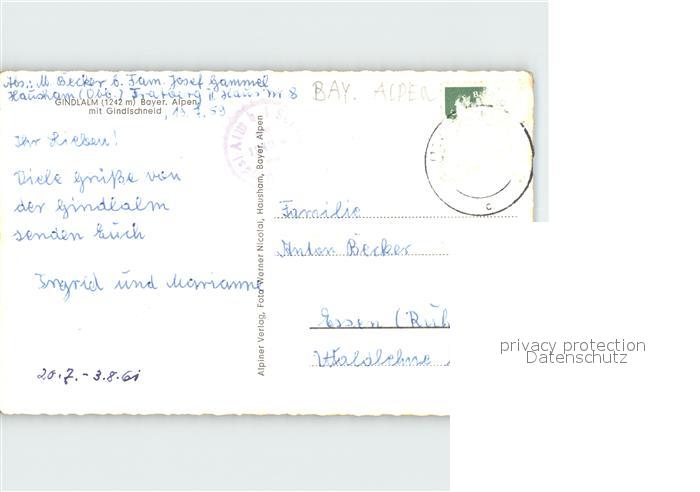 Abs.: M. Becker b. Fam. Josef Gammel
Hausham (Obb.) Haus Nr 8
GINDLALM (1242 m) Bayer. Alpen
mit Gindlschneid
BAY. ALPEN
Ihr Lieben!
Viele Grüße von
der Gindlalm
senden Euch
Ingrid und Marianne
20.7. - 3.8.61
Alpiner Verlag, Foto Werner Nicolai, Hausham, Bayer. Alpen
Familie
Anton Becker
Essen (Ruh
Waldlehne
c
privacy protection
Datenschutz